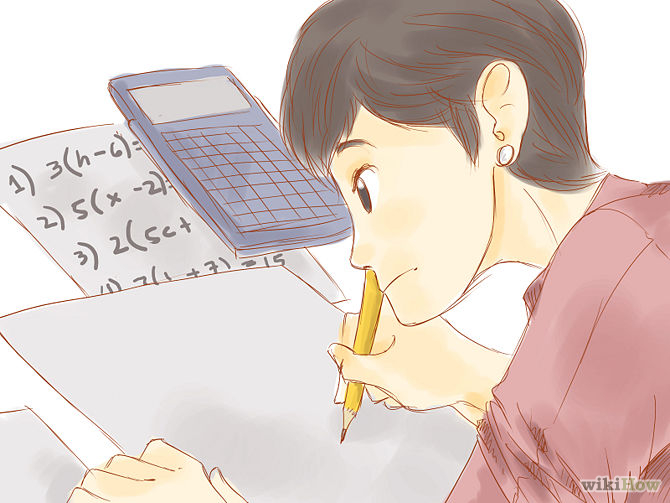 1) 3(h-6)=
2) 5(x-2)=
3) 2(5c+
+7)=15
wikiHow